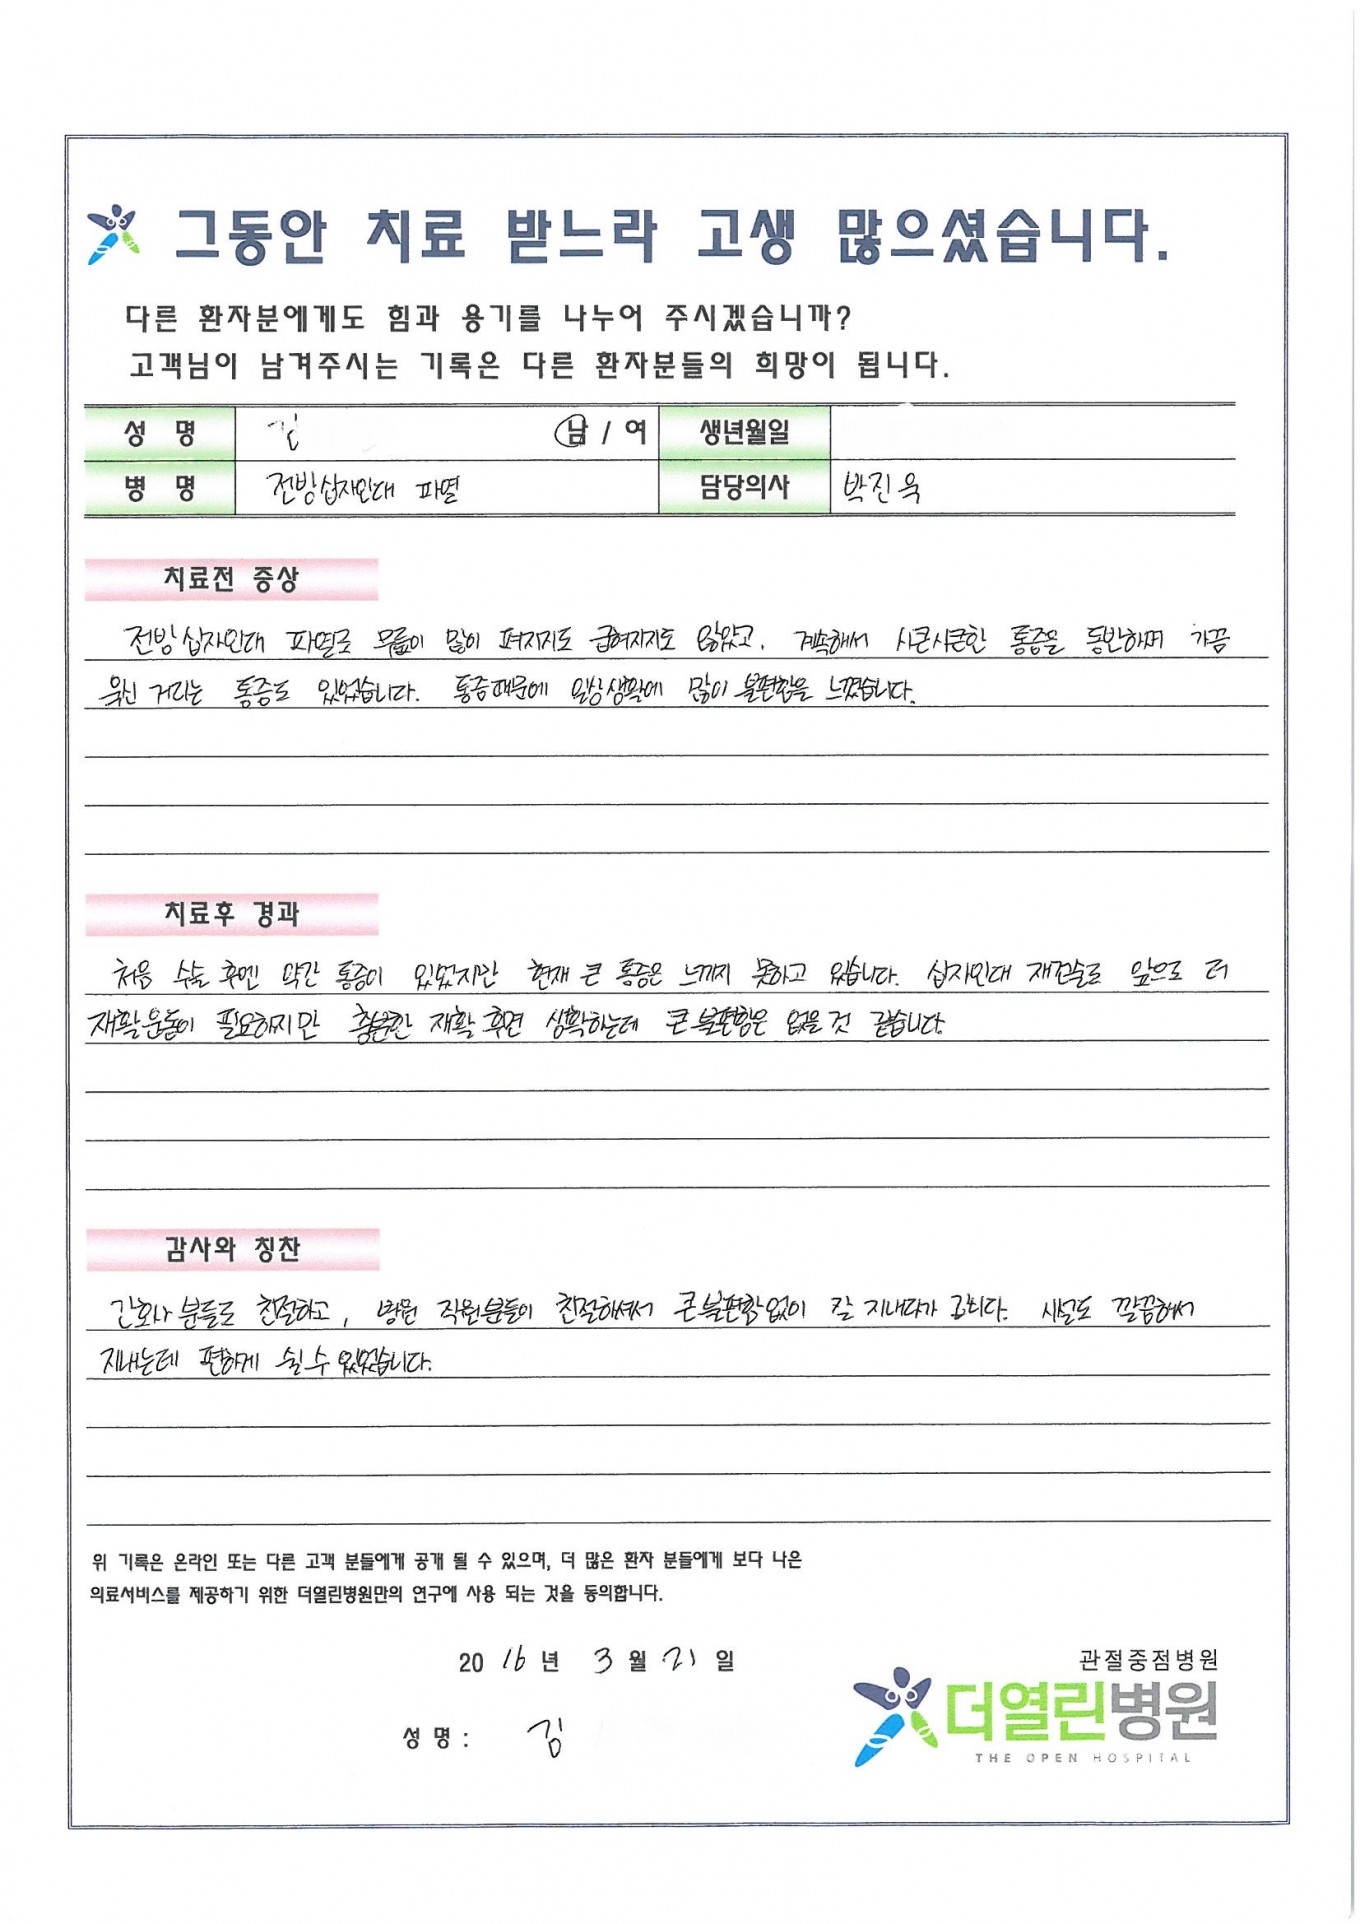 그동안 치료 받느라 고생 많으셨습니다.
다른 환자분에게도 힘과 용기를 나누어 주시겠습니까?
고객님이 남겨주시는 기록은 다른 환자분들의 희망이 됩니다.
성 명 김 남 / 여 생년월일
병 명 전방십자인대 파열 담당의사 박진욱
치료전 증상
전방십자인대 파열로 무릎이 많이 펴지지도 굽혀지지도 않았고. 계속해서 시큰시큰한 통증을 동반하며 가끔
욱신 거리는 통증도 있었습니다. 통증때문에 일상생활에 많이 불편함을 느꼈습니다.
치료후 경과
처음 수술 후엔 약간 통증이 있었지만 현재 큰 통증은 느끼지 못하고 있습니다. 십자인대 재건술로 앞으로 더
재활운동이 필요하지만 충분한 재활 후면 생활하는데 큰 불편함은 없을 것 같습니다.
감사와 칭찬
간호사 분들도 친절하고, 병원 직원분들이 친절하셔서 큰불편함없이 잘 지내다가 갑니다. 시설도 깔끔해서
지내는데 편하게 쉴 수 있었습니다.
위 기록은 온라인 또는 다른 고객 분들에게 공개 될 수 있으며, 더 많은 환자 분들에게 보다 나은
의료서비스를 제공하기 위한 더열린병원만의 연구에 사용 되는 것을 동의합니다.
20 16 년 3 월 21 일
성 명 : 김
관절중점병원
더열린병원
THE OPEN HOSPITAL